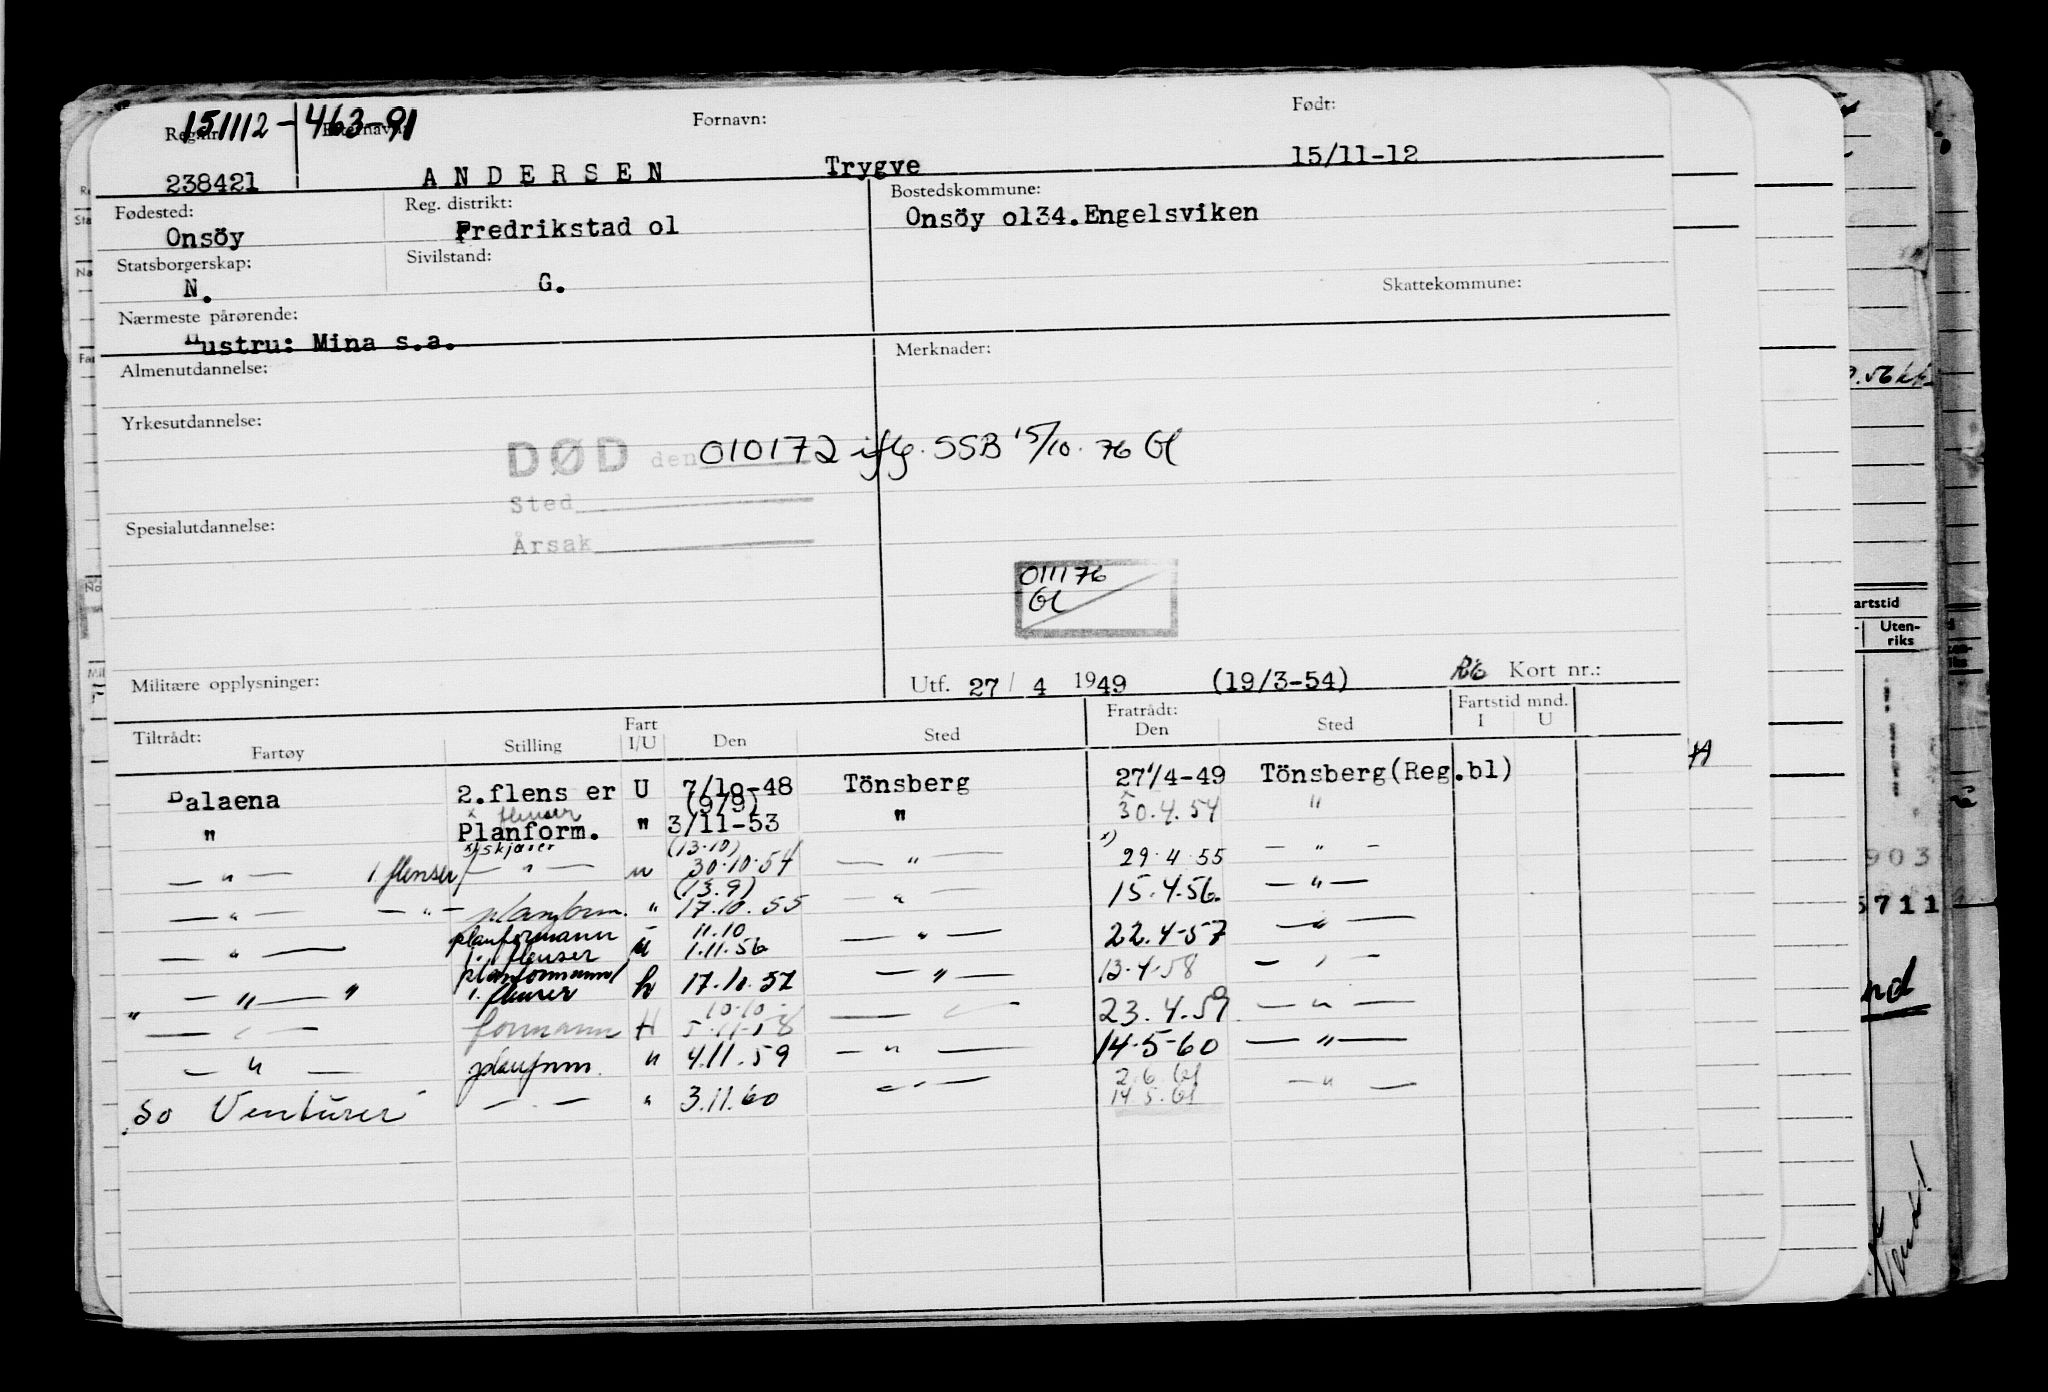 151112-463-91
Reg.nr. Etternavn: Fornavn: Født:
238421 ANDERSEN Trygve 15/11-12
Fødested: Reg. distrikt: Bostedskommune:
Onsöy Fredrikstad ol Onsöy ol34.Engelsviken
Statsborgerskap: Sivilstand: Skattekommune:
N. G.
Nærmeste pårørende:
Hustru: Mina s.a.
Almenutdannelse: Merknader:
Yrkesutdannelse:
DØD den 010172 iflg. SSB 15/10. 76 Gl
Sted
Spesialutdannelse:
Årsak
011176
Gl
Militære opplysninger: Utf. 27/ 4 1949 (19/3-54) Kort nr.:
Tiltrådt: Fratrådt: Fartstid mnd.
Fartøy Stilling Fart I/U Den Sted Den Sted I U
Balaena 2.flens er U 7/lo-48 Tönsberg 27/4-49 Tönsberg(Reg.bl)
(9/9)
x flenser
" Planform. " 3/11-53 " 30.4.54 "
x) skjærer (13.10) x)
— " — 1. flenser — " — " 30.10.54 — " — 29.4.55 — " —
(13.9)
— " — — " — planform. " 17.10.55 — " — 15.4.56. — " —
planformann 11.10
— " — 1. flenser U 1.11.56 — " — 22.4-57 — " —
planformann/
— " — " 1. flenser h 17.10.57 — " — 13.4.58 — " —
10.10
" — " — formann H 5.11.58 — " — 23.4.59 — " —
— " — planform. " 4.11.59 — " — 14-5-60 — " —
2.6.61
So Venturer — " — " 3.11.60 — " — 14.5.61 — " —
artstid
Uten-
riks
903
5711
nd